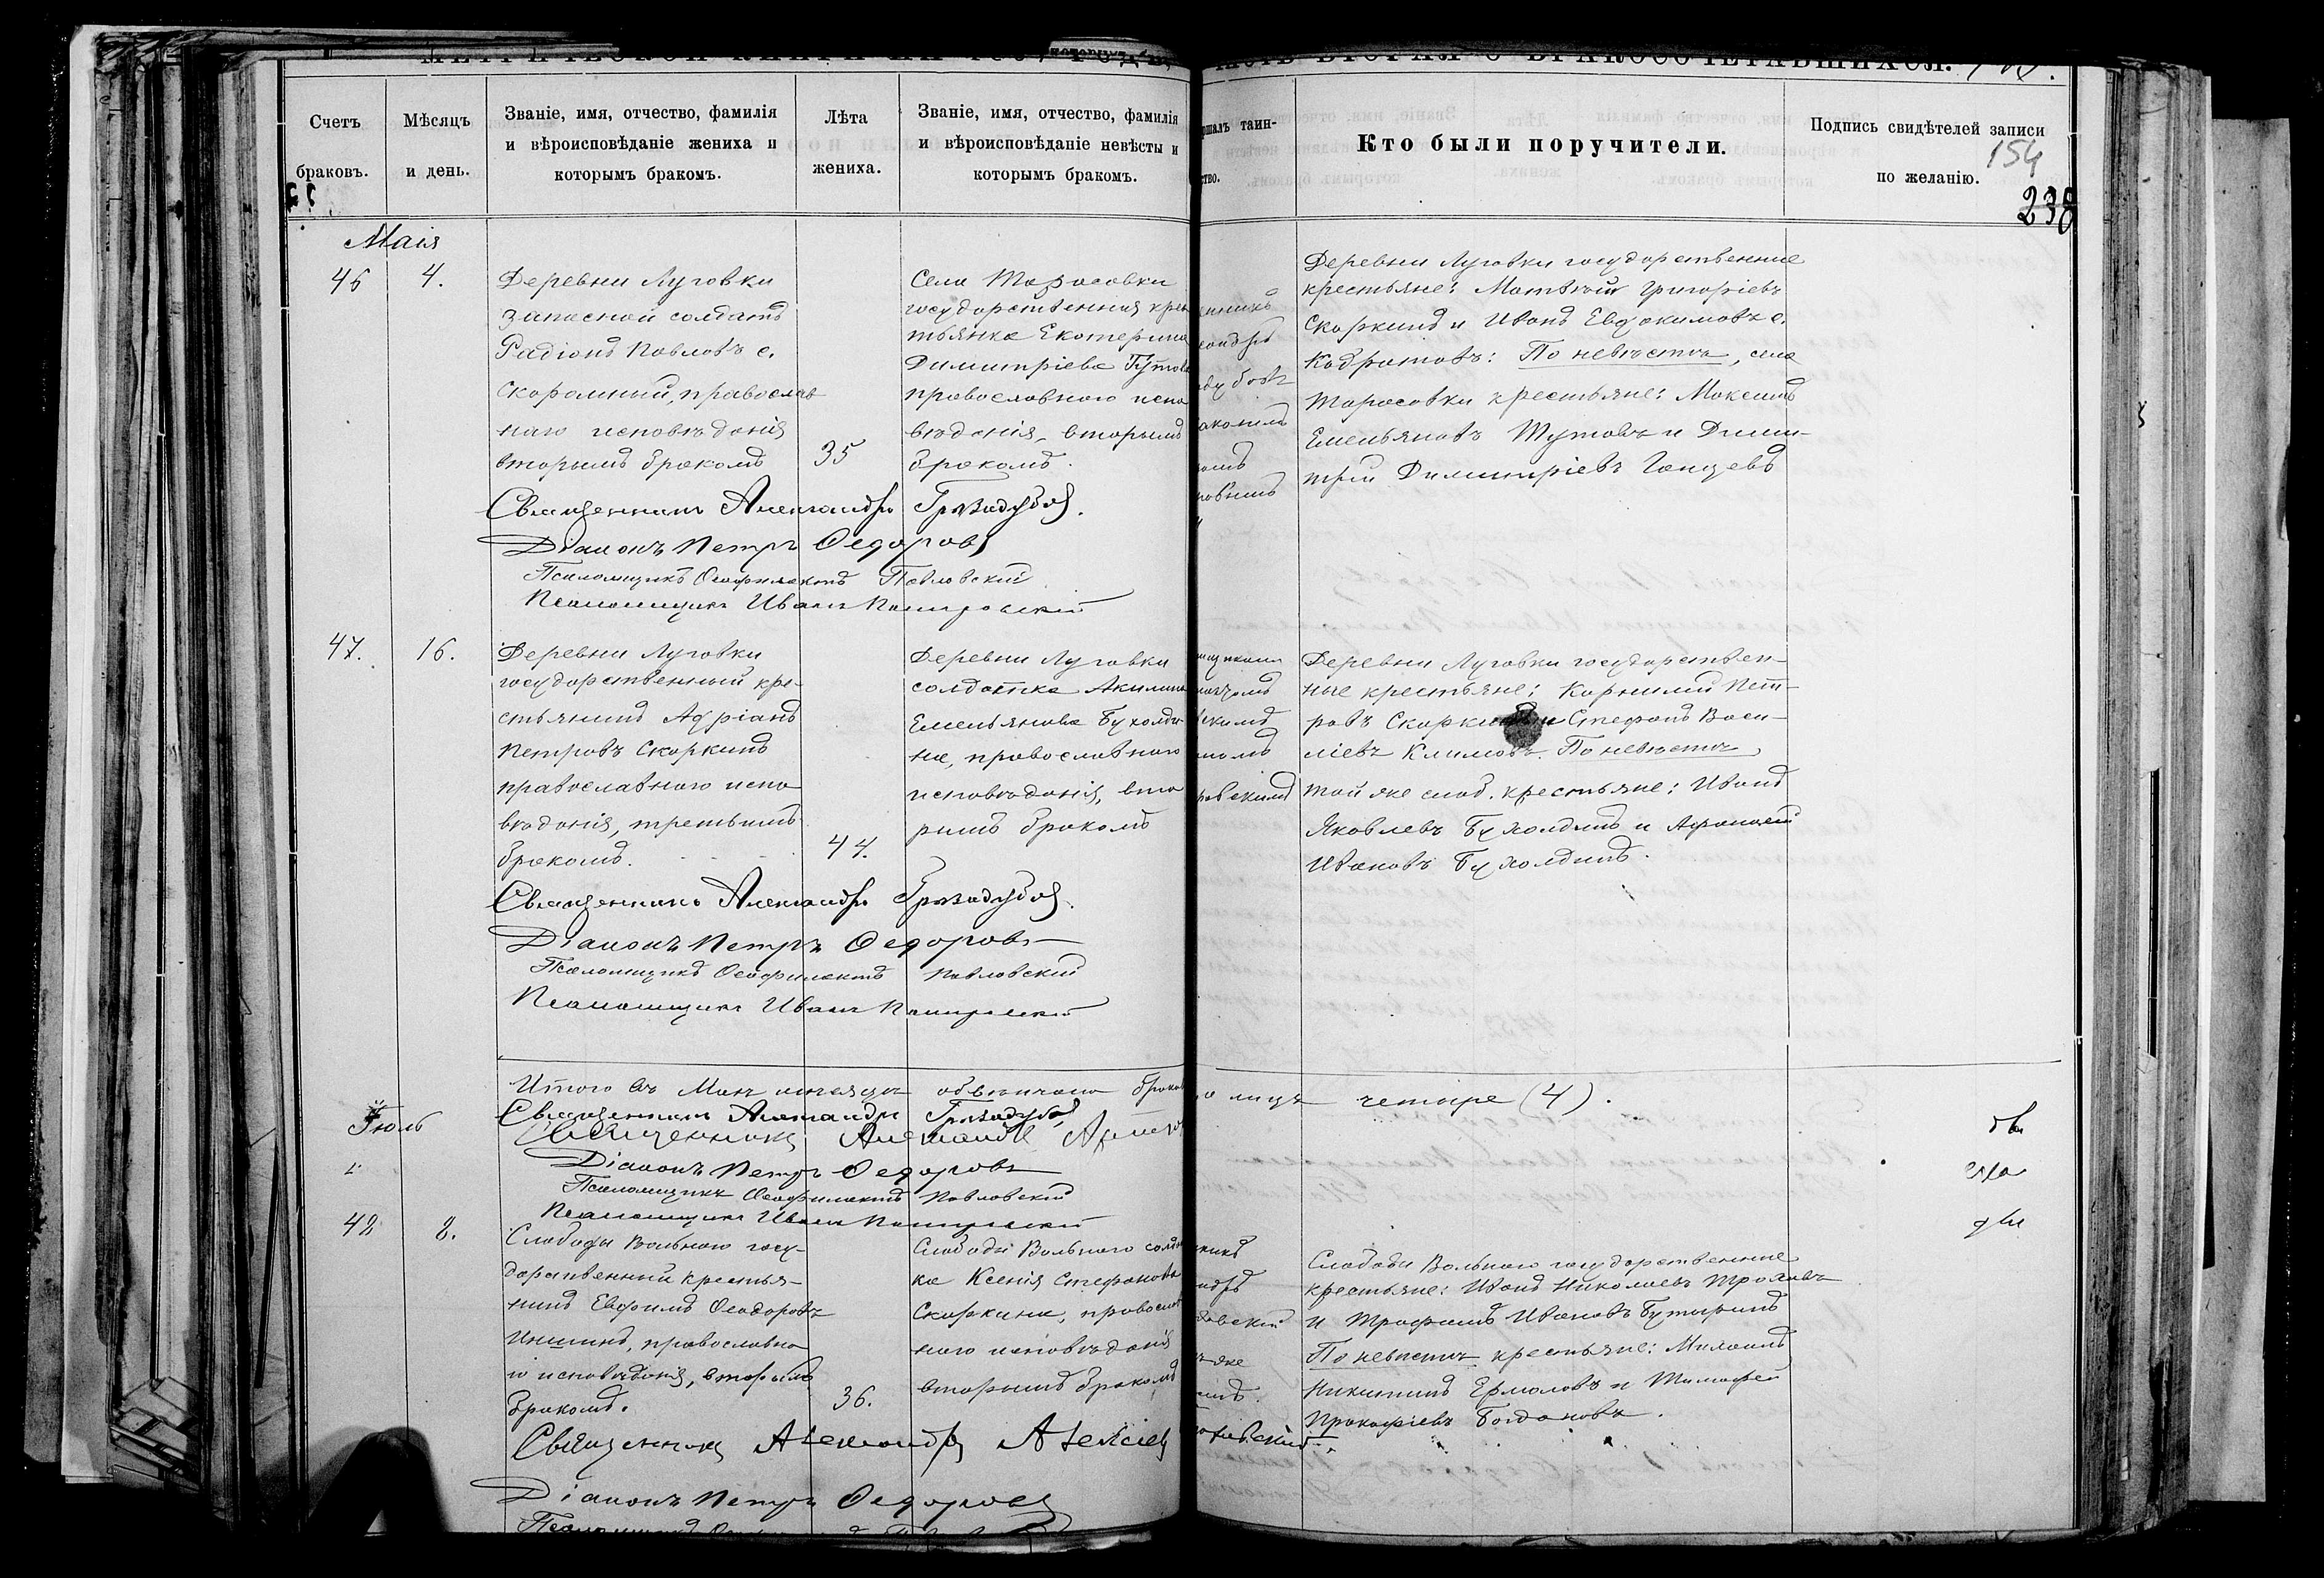 МЕТРИЧЕСКОЙ КНИГИ НА
ЧАСТЬ ВТОРАЯ О БРАКОСОЧЕТАВШИХСЯ.
Счетъ
браковъ.
Мѣсяцъ
и день.
Званіе, имя, отчество, фамилія
и вѣроисповѣданіе жениха и
которымъ бракомъ.
Лѣта
жениха.
Званіе, имя, отчество, фамилія
и вѣроисповѣданіе невѣсты и
которымъ бракомъ.
таин-
ство.
Кто были поручители.
Подпись свидѣтелей записи
по желанію.
154
238
Маія
46
4.
Деревни Луговки
запасной солдатъ
Радіонъ Павловъ с.
Скоромный, православ
наго исповѣданія
вторымъ бракомъ
35
Села Тарасовки
государственная крес
тьянка Екатерина
Димитріева
православного испо
вѣданія, вторымъ
бракомъ.
Деревни Луговки государственные
крестьяне: Матвѣй Григоріевъ
Скоркинъ и Иванъ Евдокимовъ с.
Кодратовъ: По невѣстѣ, села
Тарасовки крестьяне: Максимъ
Емельяновъ Шутовъ и Дими-
трій Димитріевъ
Священникъ Александръ Грязадубов.
Діаконъ Петръ Федоровъ
Псаломщикъ Феофилактъ Павловскій
Псаломщикъ Иванъ
47.
16.
Деревни Луговки
государственный кре-
стьянинъ Адріанъ
Петровъ Скоркинъ
православного испо
вѣданія, третьимъ
бракомъ.
44.
Деревни Луговки
солдатка Акилина
Емельянова Бухолди
на, православного
исповѣданія, вто
рымъ бракомъ
Деревни Луговки государствен-
ные крестьяне: Корнилий Пет-
ровъ Скоркинъ и Стефанъ Васи-
ліевъ Климовъ. По невѣстѣ,
той же слоб. крестьяне: Иванъ
Яковлевъ Бухолдинъ и Афанасій
Ивановъ Бухолдинъ.
Священникъ Александръ Грязадубов.
Діаконъ Петръ Федоровъ
Псаломщикъ Феофилактъ Павловский
Псаломщикъ Иванъ
Итого въ Маѣ мѣсяцѣ обвѣнчано браков
лицъ четыре (4).
Священникъ Александръ Грязадубов
Священникъ Александръ
Діаконъ Петръ Федоровъ
Псаломщикъ Феофилактъ Павловскій
Псаломщикъ Иванъ
Іюль
48
8.
Слободы Вольного госу-
дарственный крестья-
нинъ Евфимъ Феодоровъ
Иншинъ, православно
го исповѣданія, вторымъ
бракомъ.
36.
Слободы Вольного солдат
ка Ксенія Стефанова
Скоркина, православ
ного исповѣданія
вторымъ бракомъ
Слободы Вольного государственные
крестьяне: Иванъ Николаевъ Троховъ
и Трофимъ Ивановъ Бутыринъ
По невѣстѣ крестьяне:
Никитинъ Ермоловъ и Тимофей
Прокофіевъ Богдановъ.
Священникъ Александръ Алексіевъ
Діаконъ Петръ Федоровъ